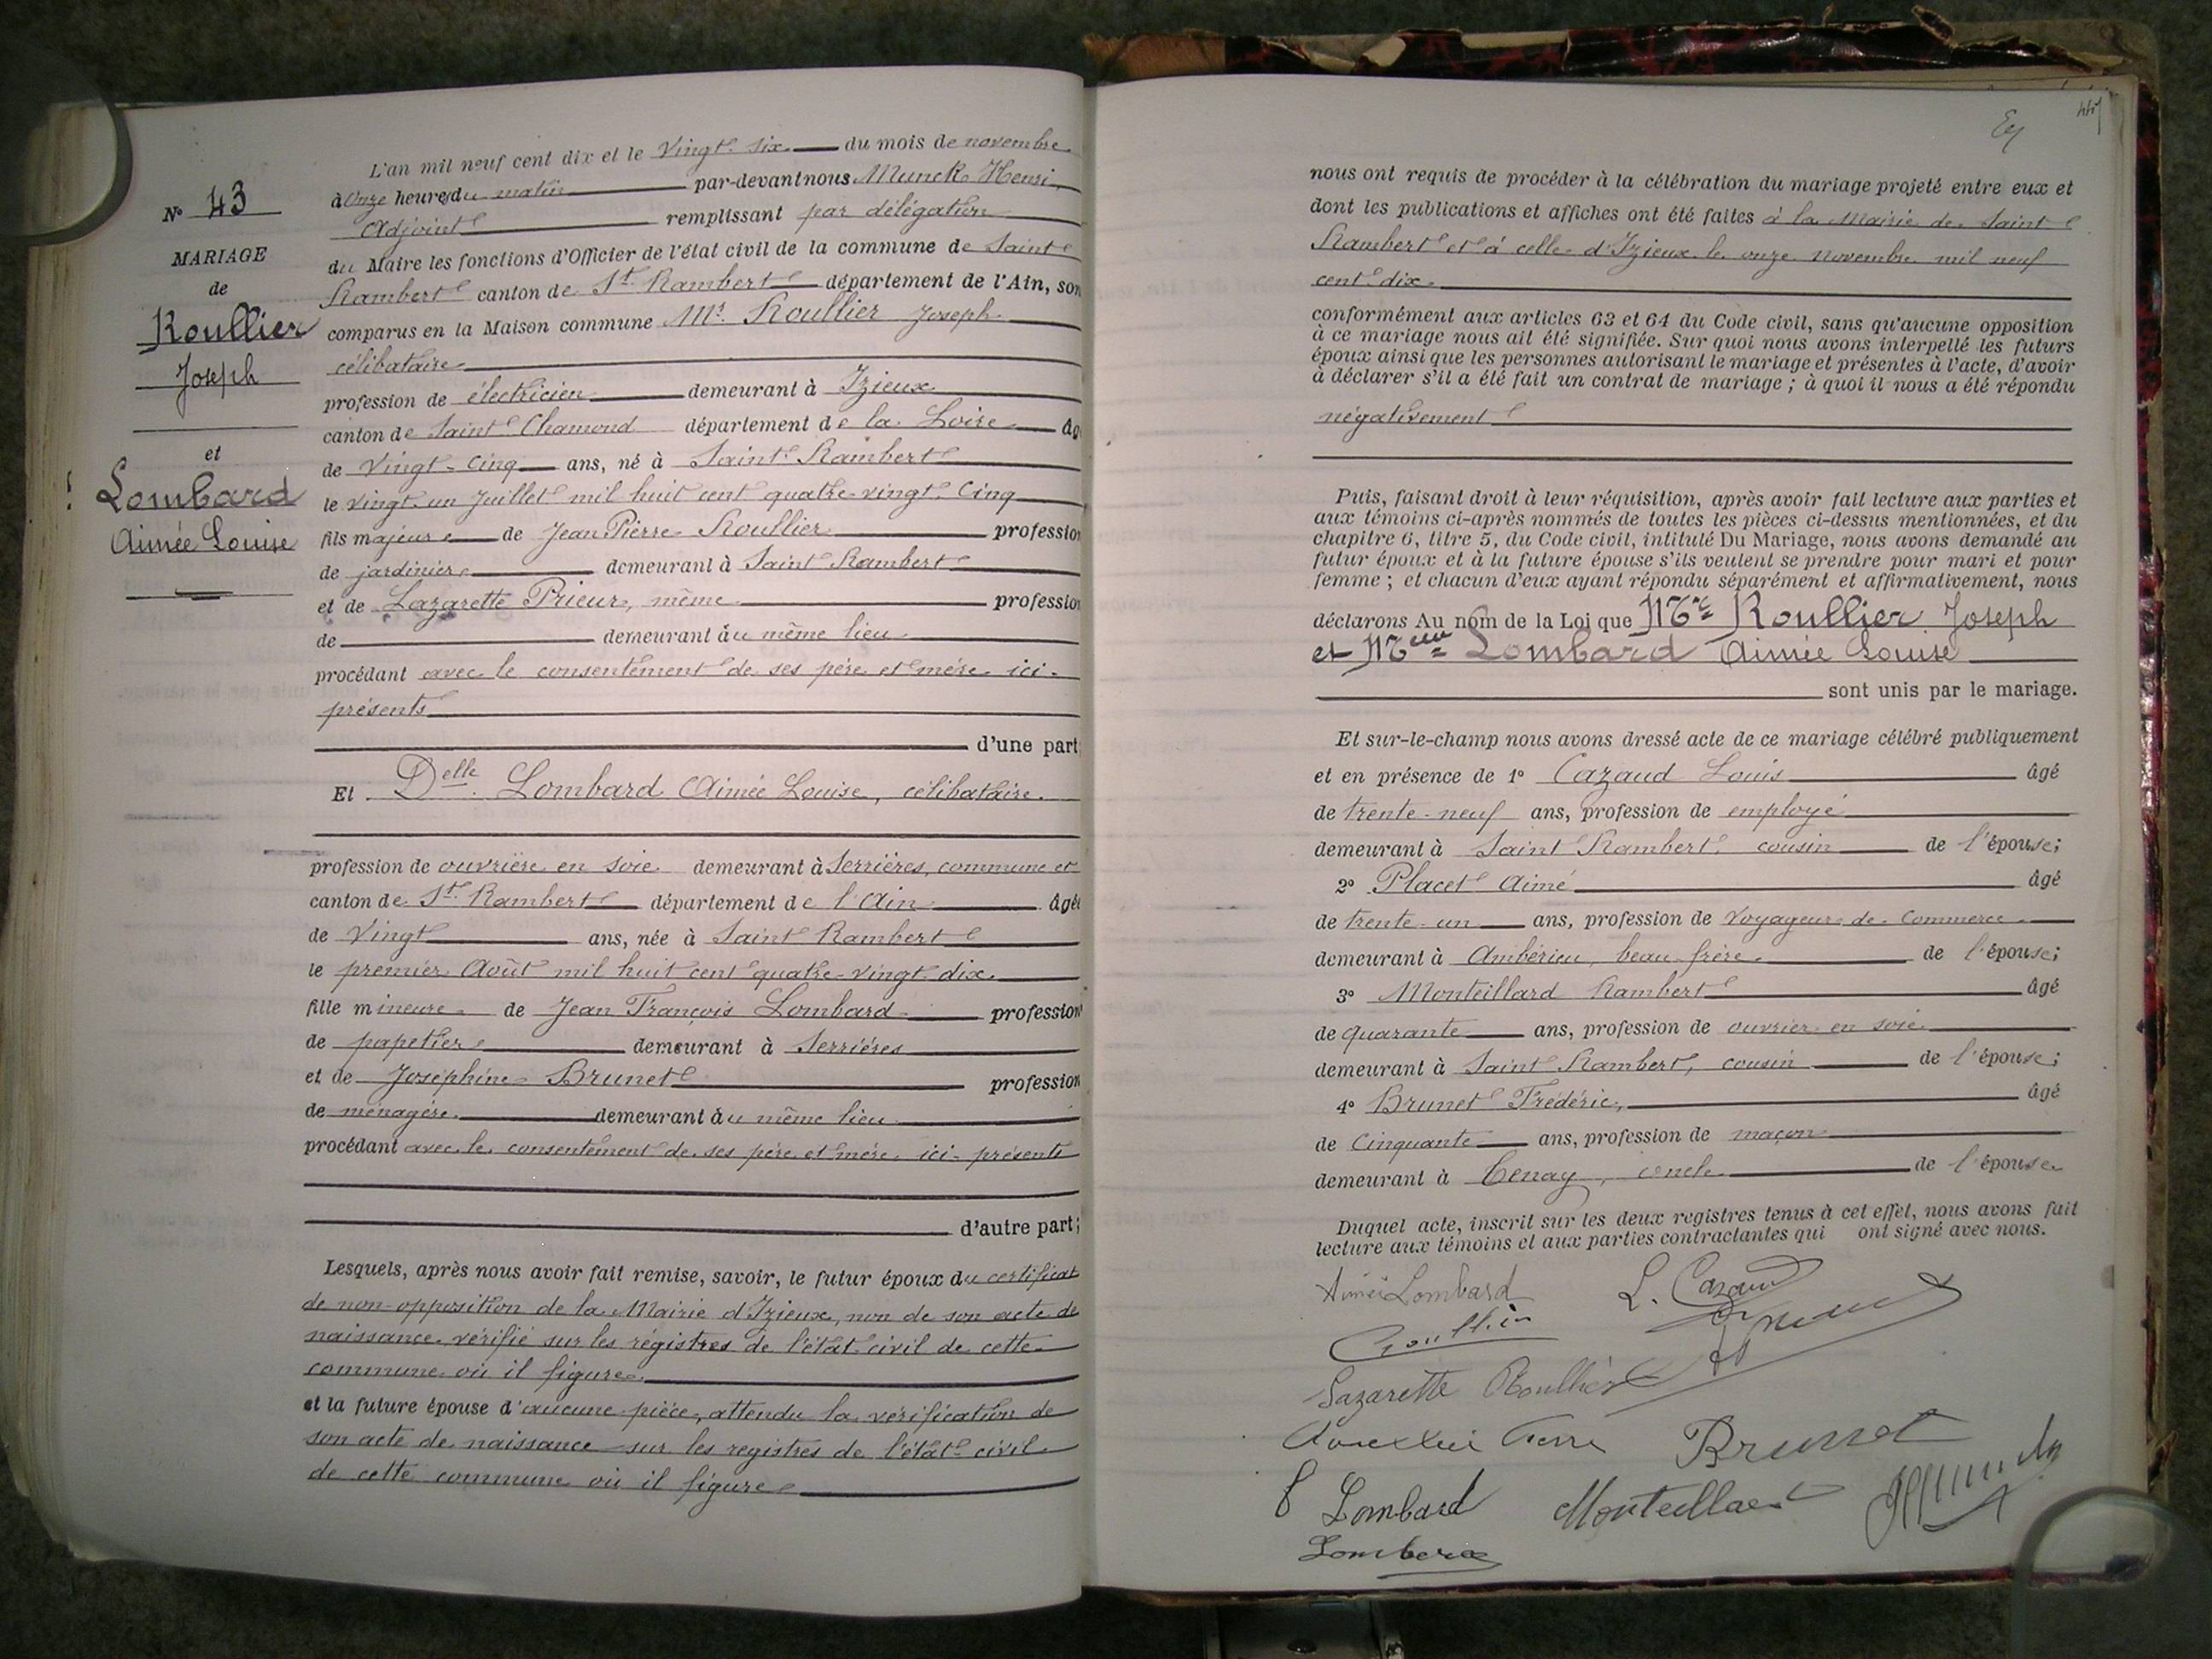 N° 43
MARIAGE
de
Roullier
Joseph
et
Lombard
Aimée Louise
L'an mil neuf cent dix et le Vingt-six du mois de novembre
à Onze heures du matin par-devant nous Munck Henri
Adjoint remplissant par délégation
du Maire les fonctions d'Officier de l'état civil de la commune de Saint
Rambert canton de St Rambert département de l'Ain, son
comparus en la Maison commune Mr. Roullier Joseph
célibataire
profession de électricien demeurant à Izieux
canton de Saint Chamond département de la Loire âg
de Vingt-cinq ans, né à Saint Rambert
le vingt-un Juillet mil huit cent quatre-vingt-cinq
fils majeur de Jean Pierre Roullier profession
de jardinier demeurant à Saint Rambert
et de Lazarette Prieur, même profession
de demeurant au même lieu
procédant avec le consentement de ses père et mère ici-
présents
d'une part;
Et Delle Lombard Aimée Louise, célibataire
profession de ouvrière en soie demeurant à Serrières, commune et
canton de St. Rambert département de l'Ain âgée
de Vingt ans, née à Saint Rambert
le premier Août mil huit cent quatre-vingt-dix
fille mineure de Jean François Lombard profession
de papetier demeurant à Serrières
et de Joséphine Brunet profession
de ménagère demeurant au même lieu
procédant avec le consentement de ses père et mère ici-présents
d'autre part;
Lesquels, après nous avoir fait remise, savoir, le futur époux du certificat
de non-opposition de la Mairie d'Izieux, non de son acte de
naissance vérifié sur les régistres de l'état civil de cette
commune où il figure
et la future épouse d'aucune pièce, attendu la vérification de
son acte de naissance sur les registres de l'état civil
de cette commune où il figure
nous ont requis de procéder à la célébration du mariage projeté entre eux et
dont les publications et affiches ont été faites à la Mairie de Saint
Rambert et à celle d'Izieux le onze novembre mil neuf
cent dix
conformément aux articles 63 et 64 du Code civil, sans qu'aucune opposition
à ce mariage nous ait été signifiée. Sur quoi nous avons interpellé les futurs
époux ainsi que les personnes autorisant le mariage et présentes à l'acte, d'avoir
à déclarer s'il a été fait un contrat de mariage ; à quoi il nous a été répondu
négativement
Puis, faisant droit à leur réquisition, après avoir fait lecture aux parties et
aux témoins ci-après nommés de toutes les pièces ci-dessus mentionnées, et du
chapitre 6, titre 5, du Code civil, intitulé Du Mariage, nous avons demandé au
futur époux et à la future épouse s'ils veulent se prendre pour mari et pour
femme ; et chacun d'eux ayant répondu séparément et affirmativement, nous
déclarons Au nom de la Loi que Mr Roullier Joseph
et Melle Lombard Aimée Louise
sont unis par le mariage.
Et sur-le-champ nous avons dressé acte de ce mariage célébré publiquement
et en présence de 1° Cazaud Louis âgé
de trente-neuf ans, profession de employé
demeurant à Saint Rambert, cousin de l'épouse;
2° Placet Aimé âgé
de trente-un ans, profession de Voyageur de Commerce
demeurant à Ambérieu, beau-frère de l'épouse;
3° Monteillard Rambert âgé
de quarante ans, profession de ouvrier en soie
demeurant à Saint Rambert, cousin de l'épouse;
4° Brunet Frédéric, âgé
de Cinquante ans, profession de maçon
demeurant à Tenay, oncle de l'épouse
Duquel acte, inscrit sur les deux registres tenus à cet effet, nous avons fait
lecture aux témoins et aux parties contractantes qui ont signé avec nous.
Aimée Lombard L. Cazaud
Roullier
Lazarette Roullier
Brunet
Lombard Monteillard
Lombard